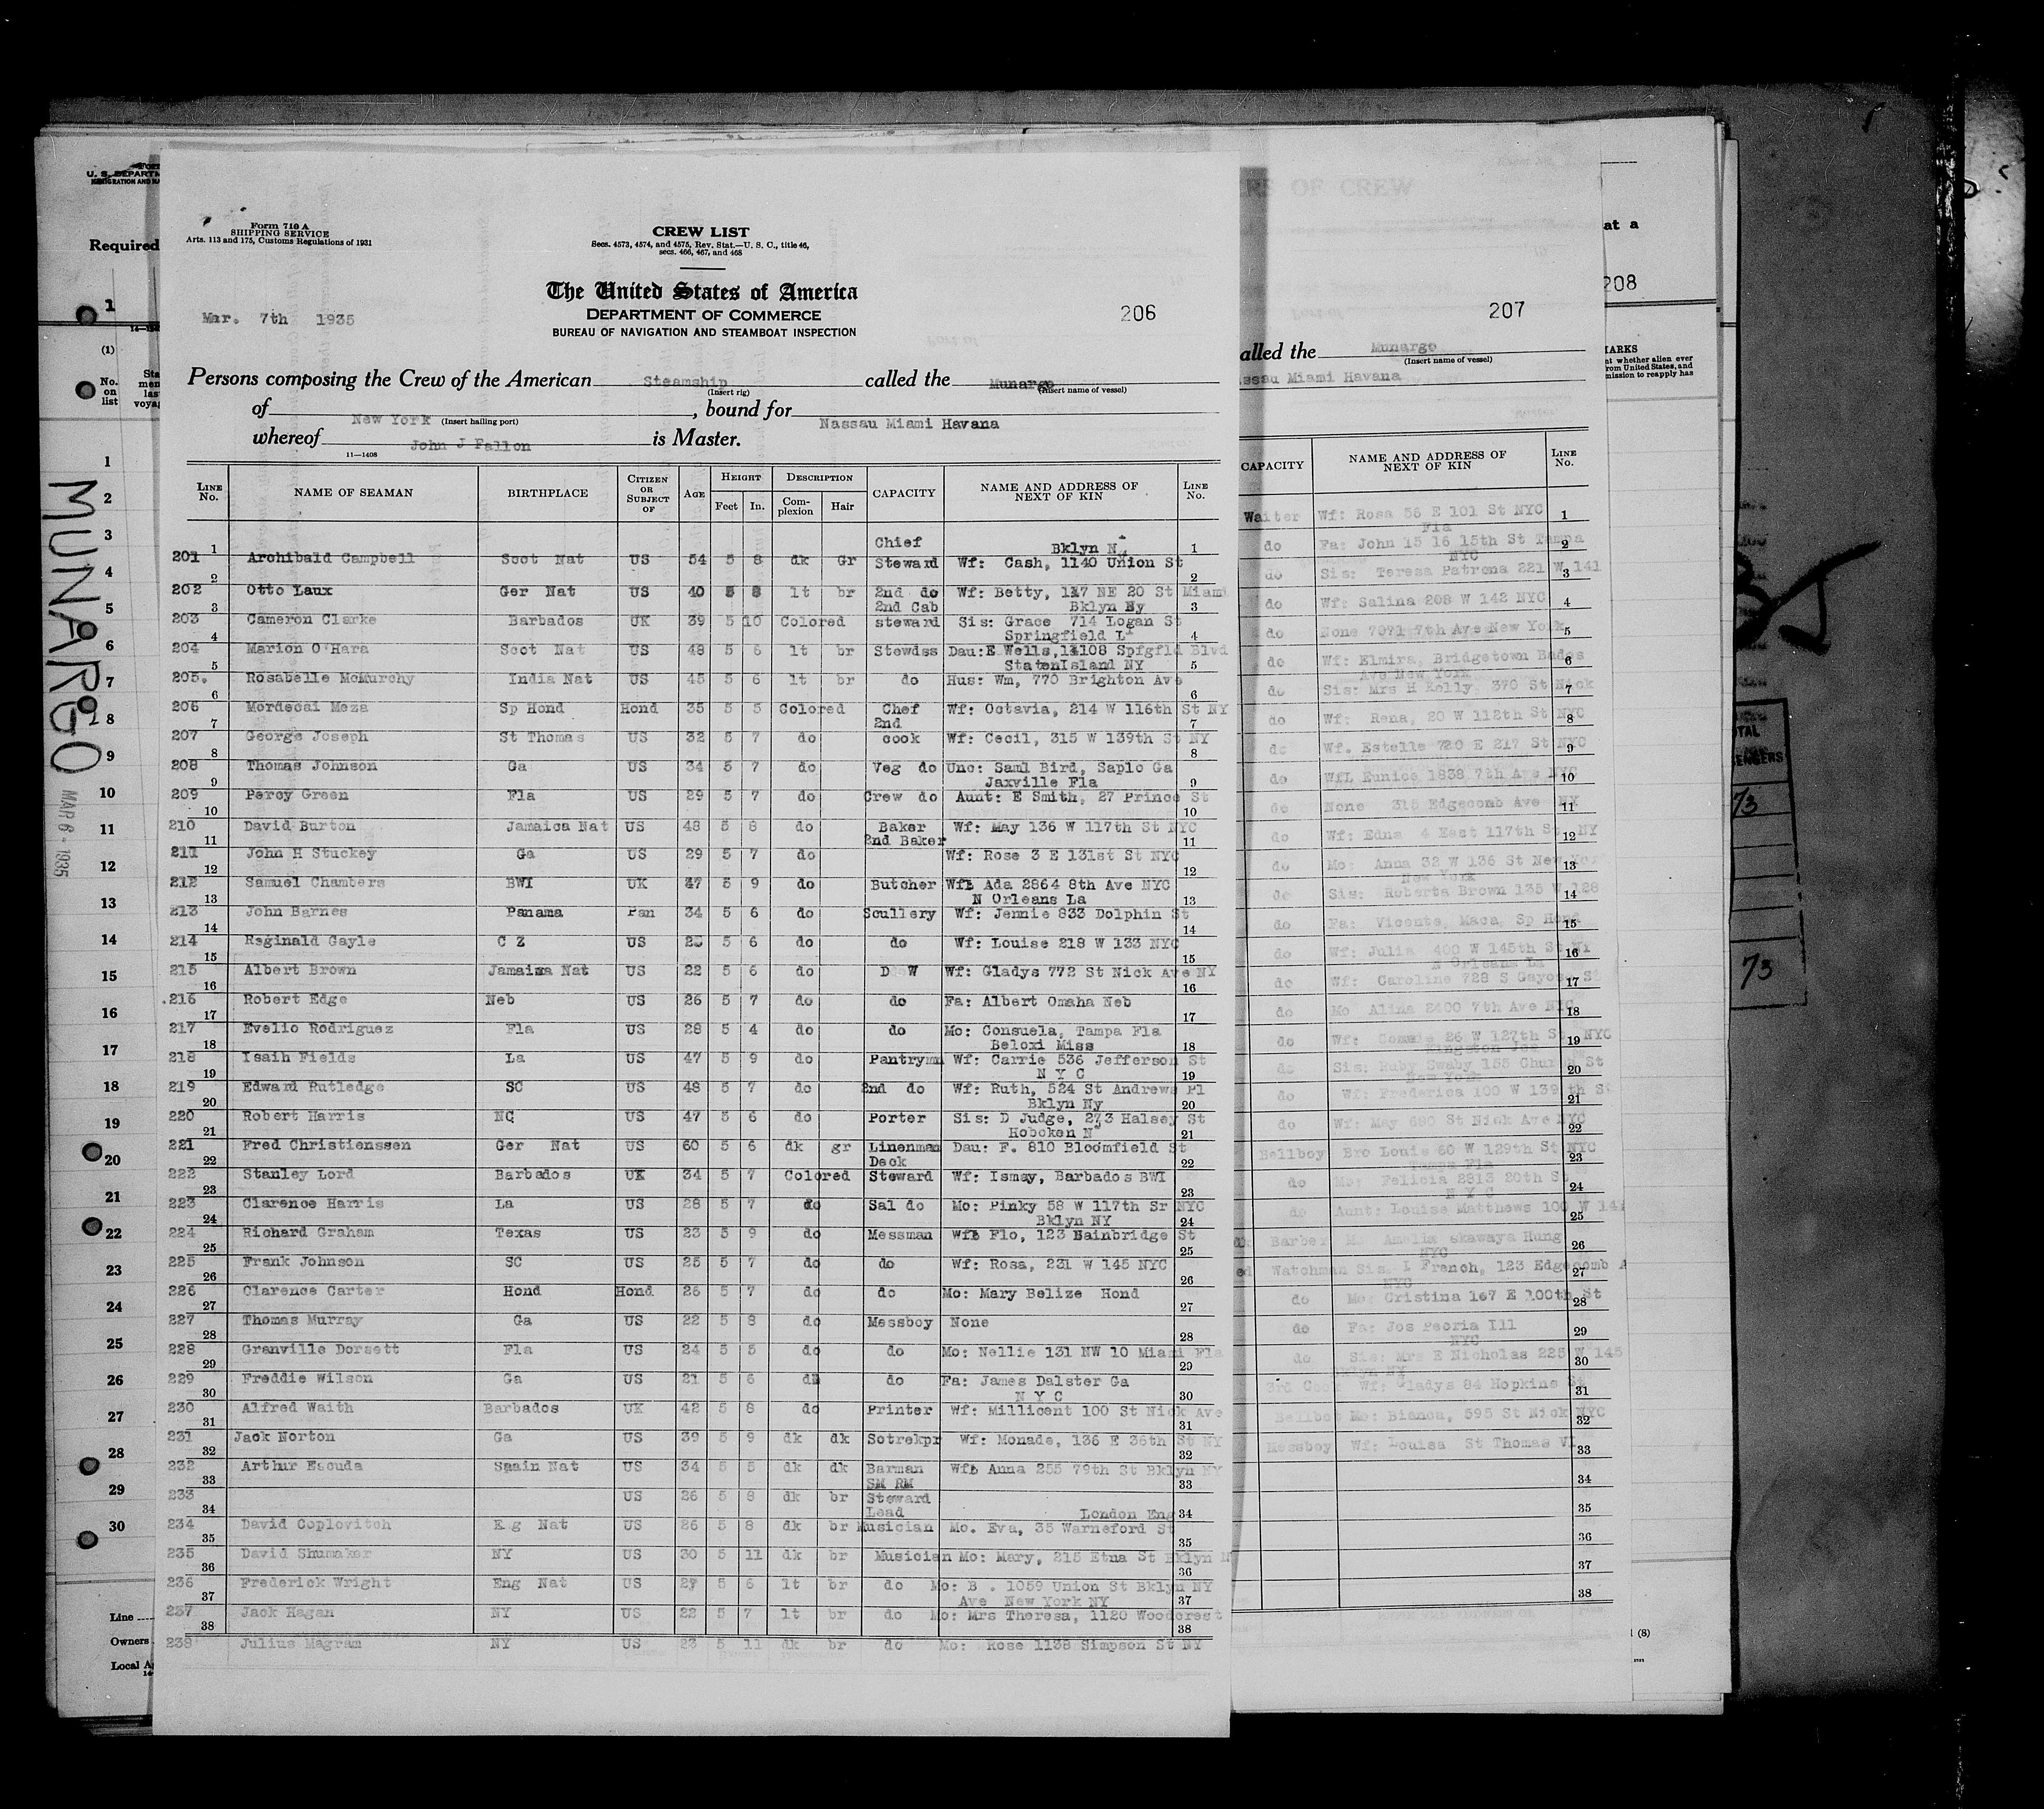 U. S. DEPARTM
Required
1
(1)
No. on list
MUNARGO
MAR 6 - 1935
Form 710 A
SHIPPING SERVICE
Arts. 113 and 175, Customs Regulations of 1931
CREW LIST
Secs. 4573, 4574, and 4575, Rev. Stat.—U. S. C., title 46,
secs. 466, 467, and 468
The United States of America
DEPARTMENT OF COMMERCE
BUREAU OF NAVIGATION AND STEAMBOAT INSPECTION
Mar. 7th 1935
206
Persons composing the Crew of the American Steamship called the Munargo
(Insert rig) (Insert name of vessel)
of New York, bound for Nassau Miami Havana
(Insert hailing port)
whereof John J Fallon is Master.
11—1408
LINE No. NAME OF SEAMAN BIRTHPLACE CITIZEN OR SUBJECT OF AGE HEIGHT Feet In. DESCRIPTION Complexion Hair CAPACITY NAME AND ADDRESS OF NEXT OF KIN LINE No.
201 1 Archibald Campbell Scot Nat US 54 5 8 dk Gr Chief Steward Wf: Cash, 1140 Union St Bklyn N 1
202 2 Otto Laux Ger Nat US 40 5 8 lt br 2nd do Wf: Betty, 117 NE 20 St Miami 2
203 3 Cameron Clarke Barbados UK 39 5 10 Colored 2nd Cab steward Sis: Grace 714 Logan St Bklyn Ny 3
204 4 Marion O'Hara Scot Nat US 48 5 6 lt br Stewdss Dau: E Wells, 14108 Spfgfld Blvd Springfield L 4
205. 5 Rosabelle McMurchy India Nat US 45 5 6 lt br do Hus: Wm, 770 Brighton Ave StatenIsland NY 5
206 6 Mordecai Meza Sp Hond Hond 35 5 5 Colored Chef Wf: Octavia, 214 W 116th St NY 6
207 7 George Joseph St Thomas US 32 5 7 do 2nd cook Wf: Cecil, 315 W 139th St NY 7
208 8 Thomas Johnson Ga US 34 5 7 do Veg do Unc: Saml Bird, Saplo Ga 8
209 9 Percy Green Fla US 29 5 7 do Crew do Aunt: E Smith, 27 Prince St Jaxville Fla 9
210 10 David Burton Jamaica Nat US 48 5 8 do Baker Wf: May 136 W 117th St NYC 10
211 11 John H Stuckey Ga US 29 5 7 do 2nd Baker Wf: Rose 3 E 131st St NYC 11
212 12 Samuel Chambers BWI UK 47 5 9 do Butcher Wf: Ada 2864 8th Ave NYC 12
213 13 John Barnes Panama Pan 34 5 6 do Scullery Wf: Jennie 833 Dolphin St N Orleans La 13
214 14 Reginald Gayle C Z US 5 6 do do Wf: Louise 218 W 133 NYC 14
215 15 Albert Brown Jamaica Nat US 22 5 6 do D W Wf: Gladys 772 St Nick Ave NY 15
.216 16 Robert Edge Neb US 26 5 7 do do Fa: Albert Omaha Neb 16
217 17 Evelio Rodriguez Fla US 28 5 4 do do Mo: Consuela, Tampa Fla 17
218 18 Isaih Fields La US 47 5 9 do Pantrymn Wf: Carrie 536 Jefferson St Beloxi Miss 18
219 19 Edward Rutledge SC US 48 5 7 do 2nd do Wf: Ruth, 524 St Andrews Pl N Y C 19
220 20 Robert Harris NC US 47 5 6 do Porter Sis: D Judge, 273 Halsey St Bklyn Ny 20
221 21 Fred Christienssen Ger Nat US 60 5 6 dk gr Linenman Dau: F. 810 Bloomfield St Hoboken N 21
222 22 Stanley Lord Barbados UK 34 5 7 Colored Deck Steward Wf: Ismay, Barbados BWI 22
223 23 Clarence Harris La US 28 5 7 do Sal do Mo: Pinky 58 W 117th Sr NYC 23
224 24 Richard Graham Texas US 23 5 9 do Messman Wf: Flo, 123 Bainbridge St Bklyn NY 24
225 25 Frank Johnson SC US 25 5 7 do do Wf: Rosa, 231 W 145 NYC 25
226 26 Clarence Carter Hond Hond 26 5 7 do do Mo: Mary Belize Hond 26
227 27 Thomas Murray Ga US 22 5 8 do Messboy None 27
228 28 Granville Dorsett Fla US 24 5 5 do do Mo: Nellie 131 NW 10 Miami Fla 28
229 29 Freddie Wilson Ga US 21 5 6 do do Fa: James Dalster Ga 29
230 30 Alfred Waith Barbados UK 42 5 8 do Printer Wf: Millicent 100 St Nick Ave N Y C 30
231 31 Jack Norton Ga US 39 5 9 dk dk Sotrekpr Wf: Monade, 136 E 36th St NY 31
232 32 Arthur Escuda Spain Nat US 34 5 5 dk dk Barman Wf: Anna 255 79th St Bklyn NY 32
233 33 US 26 5 8 dk br SM RM Steward 33
234 34 David Coplovitch Eng Nat US 26 5 8 dk br Lead Musician Mo. Eva, 35 Warneford St London Eng 34
235 35 David Shumaker NY US 30 5 11 dk br Musician Mo: Mary, 215 Etna St Bklyn N 35
236 36 Frederick Wright Eng Nat US 27 5 6 lt br do Mo: B . 1059 Union St Bklyn NY 36
237 37 Jack Hagan NY US 22 5 7 lt br do Mo: Mrs Theresa, 1120 Woodcrest Ave New York NY 37
238 38 Julius Magram NY US 23 5 11 dk br do Mo: Rose 1138 Simpson St NY 38
207
alled the Munargo
(Insert name of vessel)
ssau Miami Havana
CAPACITY NAME AND ADDRESS OF NEXT OF KIN LINE No.
Waiter Wf: Rosa 56 E 101 St NYC 1
do Fa: John 15 16 15th St Tampa Fla 2
do Sis: Teresa Patrona 221 W 141 NYC 3
do Wf: Salina 208 W 142 NYC 4
do None 7071 7th Ave New York 5
do Wf: Elmira, Bridgetown Bados 6
do Sis: Mrs H Holly, 370 St Nick Ave New York 7
do Wf: Rena, 20 W 112th St NYC 8
do Wf. Estelle 720 E 217 St NYC 9
do Wf: Eunice 1838 7th Ave NYC 10
do None 315 Edgecomb Ave NY 11
do Wf: Edna 4 East 117th St NY 12
do Mo: Anna 32 W 136 St New Yor 13
do Sis: Roberta Brown 135 W 128 New York 14
do Fa: Vicente, Maca, Sp Hond 15
do Wf: Julia 400 W 145th St NY 16
do Wf: Caroline 728 S Gayoso St N Orleans La 17
do Mo Alina 2400 7th Ave NYC 18
do Wf: 26 W 127th St NYC 19
do Sis: Ruby Swaby 155 Church St Kingston Jca 20
do Wf: Frederica 100 W 139th St New York 21
do Wf: May 680 St Nick Ave NYC 22
Bellboy Bro Louis 60 W 129th St NYC 23
do Mo: Felicia 2813 20th St Fla 24
do Aunt: Louise Matthews 100 W 141 N Y C 25
Barber Mo Amelia Hung 26
Watchman Sis. L French, 123 Edgecomb A NYC 27
do Mo: Cristina 167 E 100th St NYC 28
do Fa: Jos Peoria Ill 29
do Sis: Mrs E Nicholas 225 W 145 NYC 30
3rd Cook Wf: Gladys 84 Hopkins St Bklyn NY 31
Bellboy Mo: Bianca, 595 St Nick NYC 32
Messboy Wf: Louisa St Thomas VI 33
34
35
36
37
38
at a
208
MARKS
73
73
Line
Owners
Local A